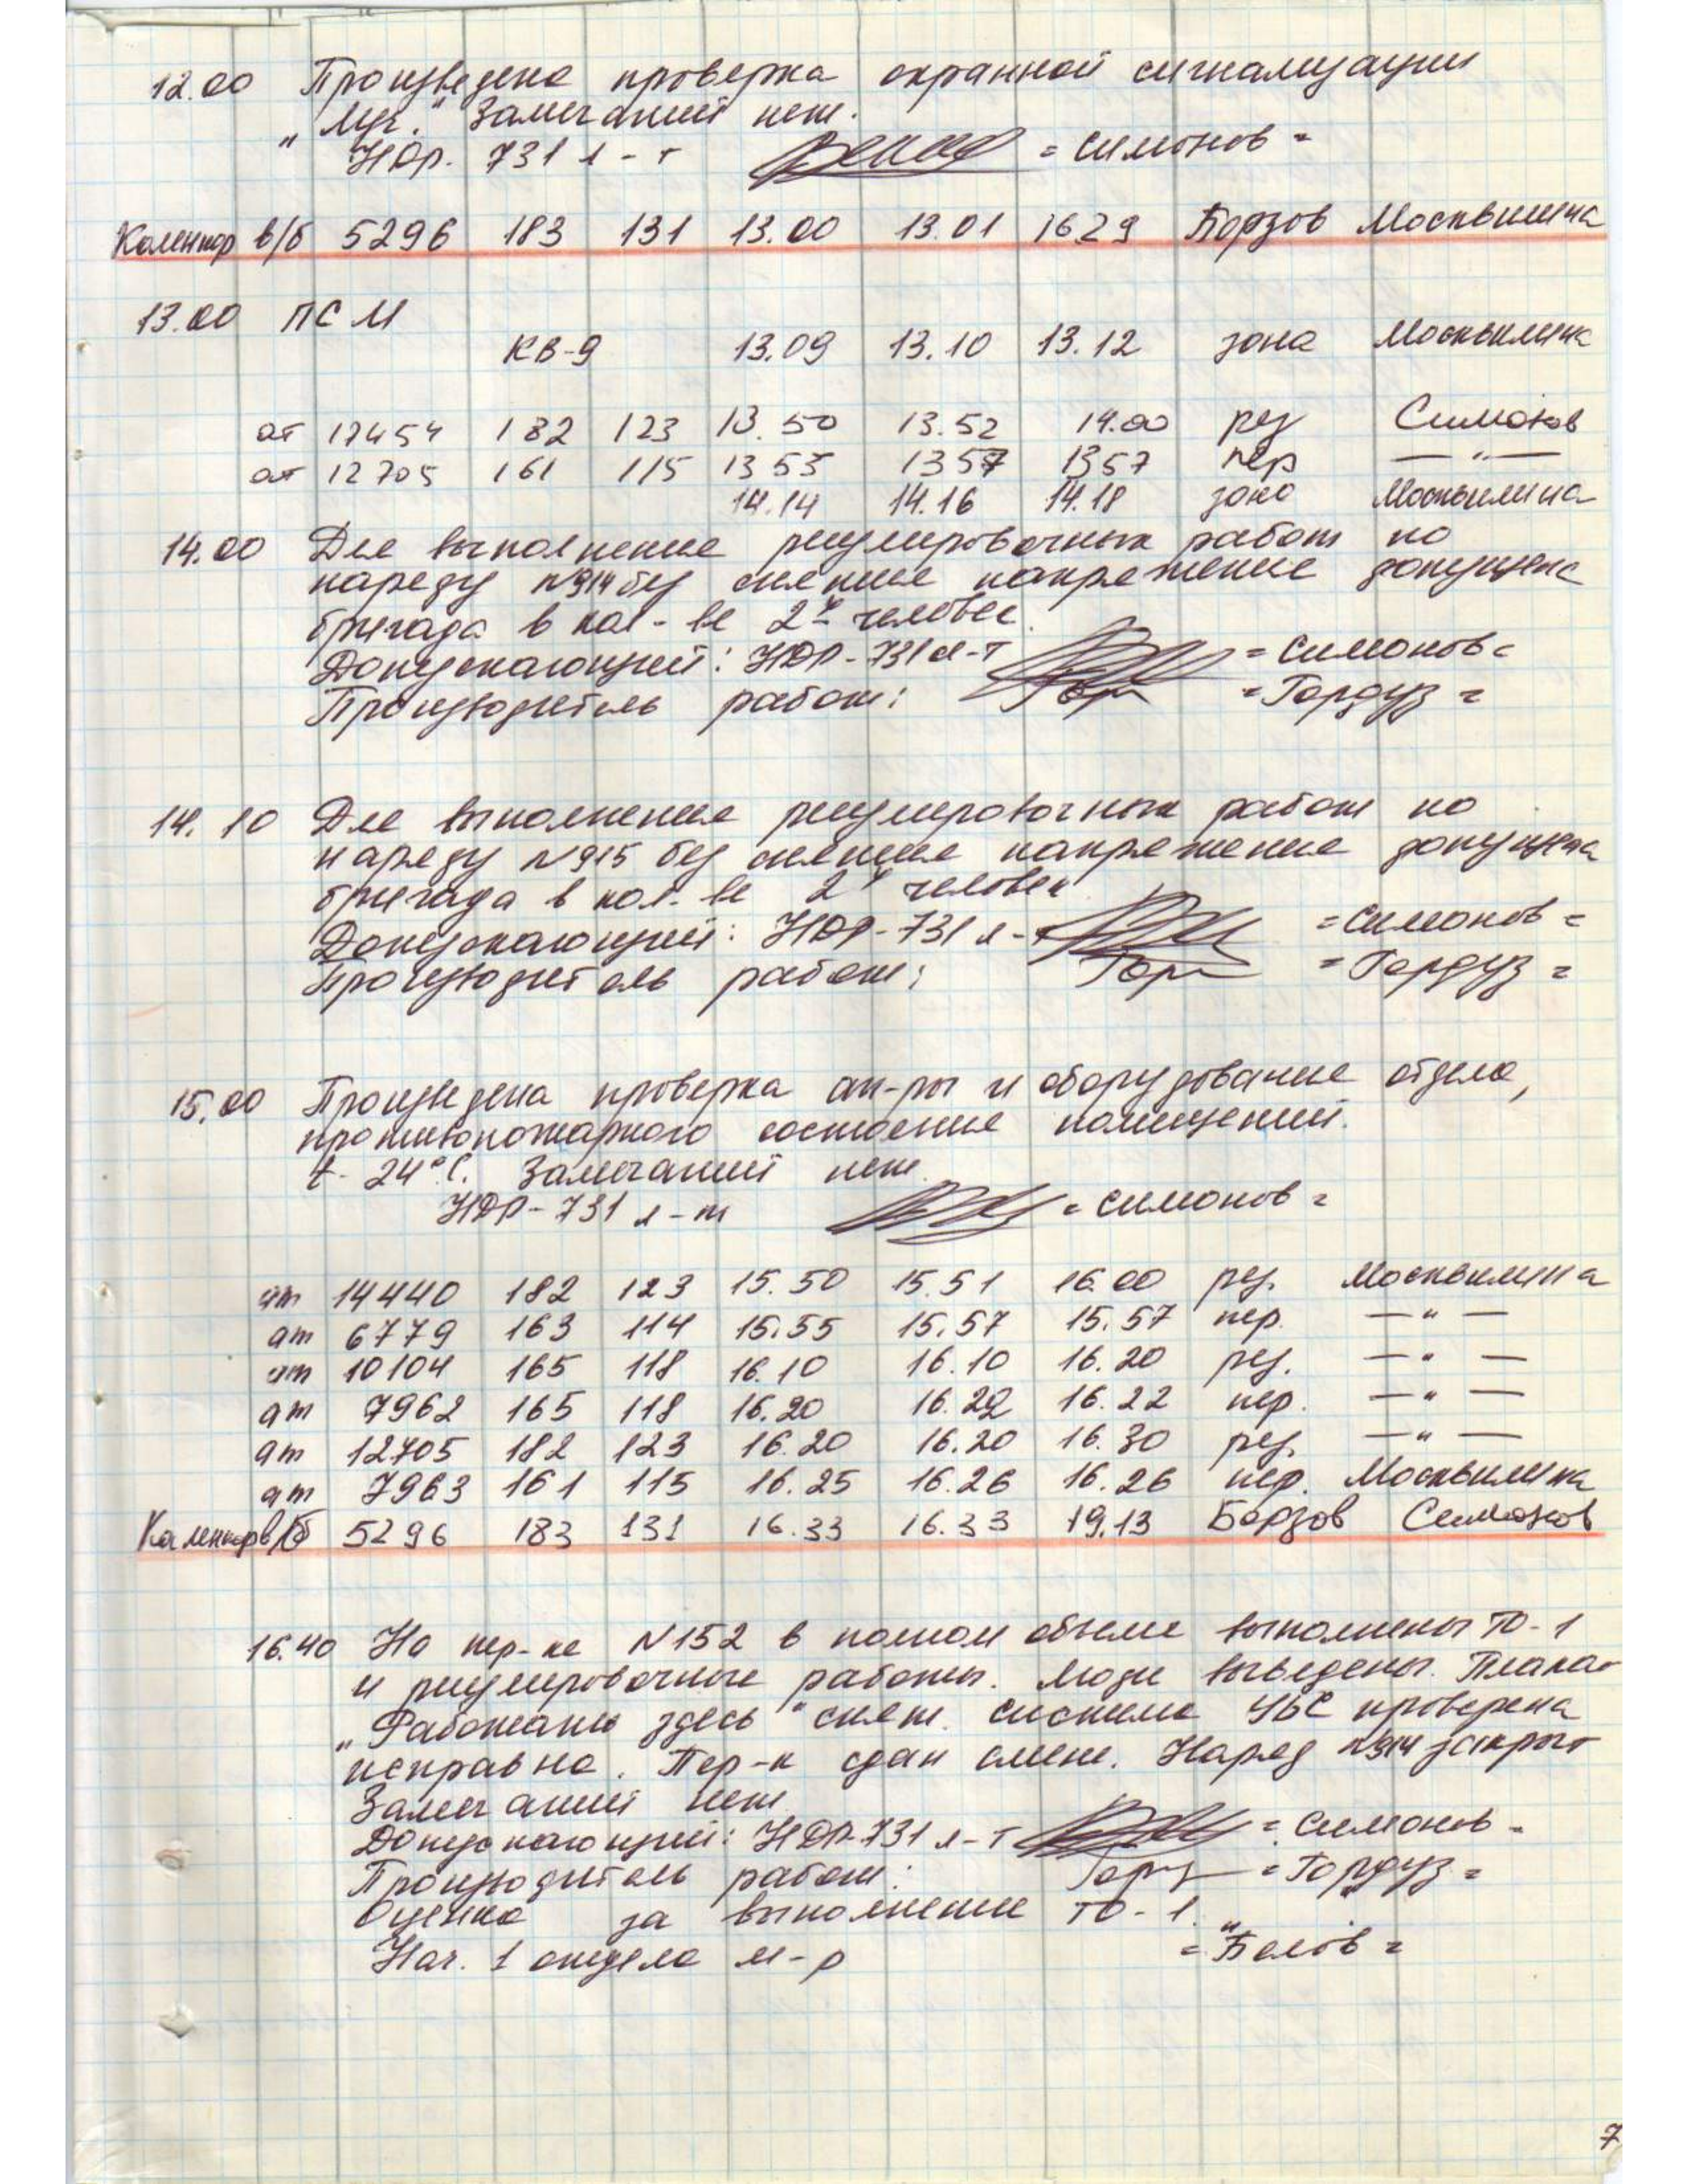 12.00 Произведена проверка охранной сигнализации
"Луч." Замечаний нет.
НДР. 731 л-т = Симонов =
Каленкор в/б 5296 183 131 13.00 13.01 1629 Борзов Москвитина
13.00 ПСМ
КВ-9 13.09 13.10 13.12 зона Москвитина
ат 17454 182 123 13.50 13.52 14.00 рез Симонов
ат 12705 161 115 13 55 1357 1357 пер — " —
14.14 14.16 14.18 зона Москвитина
14.00 Для выполнения регулировочных работ по
наряду N914 без снятия напряжения допущена
бригада в кол-ве 2х человек.
Допускающий: НДР-731 л-т = Симонов =
Производитель работ: = Гордуз =
14.10 Для выполнения регулировочных работ по
наряду N915 без снятия напряжения допущена
бригада в кол-ве 2х человек
Допускающий: НДР-731 л-т = Симонов =
Производитель работ: = Гордуз =
15.00 Произведена проверка ап-ры и оборудования отдела,
противопожарного состояния помещений.
t- 24°С. Замечаний нет.
НДР-731 л-т = Симонов =
ат 14440 182 123 15.50 15.51 16.00 рез. Москвитина
ат 6779 163 114 15.55 15.57 15.57 пер. — " —
ат 10104 165 118 16.10 16.10 16.20 рез. — " —
ат 7962 165 118 16.20 16.22 16.22 пер. — " —
ат 12705 182 123 16.20 16.20 16.30 рез. — " —
ат 7963 161 115 16.25 16.26 16.26 пер. Москвитина
Каленкор в/б 5296 183 131 16.33 16.33 19.13 Борзов Симонов
16.40 На пер-ке N152 в полном объеме выполнены ТО-1
и регулировочные работы. Люди выведены. Плакат
"Работать здесь" снят. Система УБС проверена
исправна. Пер-к сдан смене. Наряд N914 закрыт
Замечаний нет.
Допускающий: НДР-731 л-т = Симонов =
Производитель работ: = Гордуз =
Оценка за выполнение ТО-1 "
Нач. 1 отдела м-р = Белов =
7